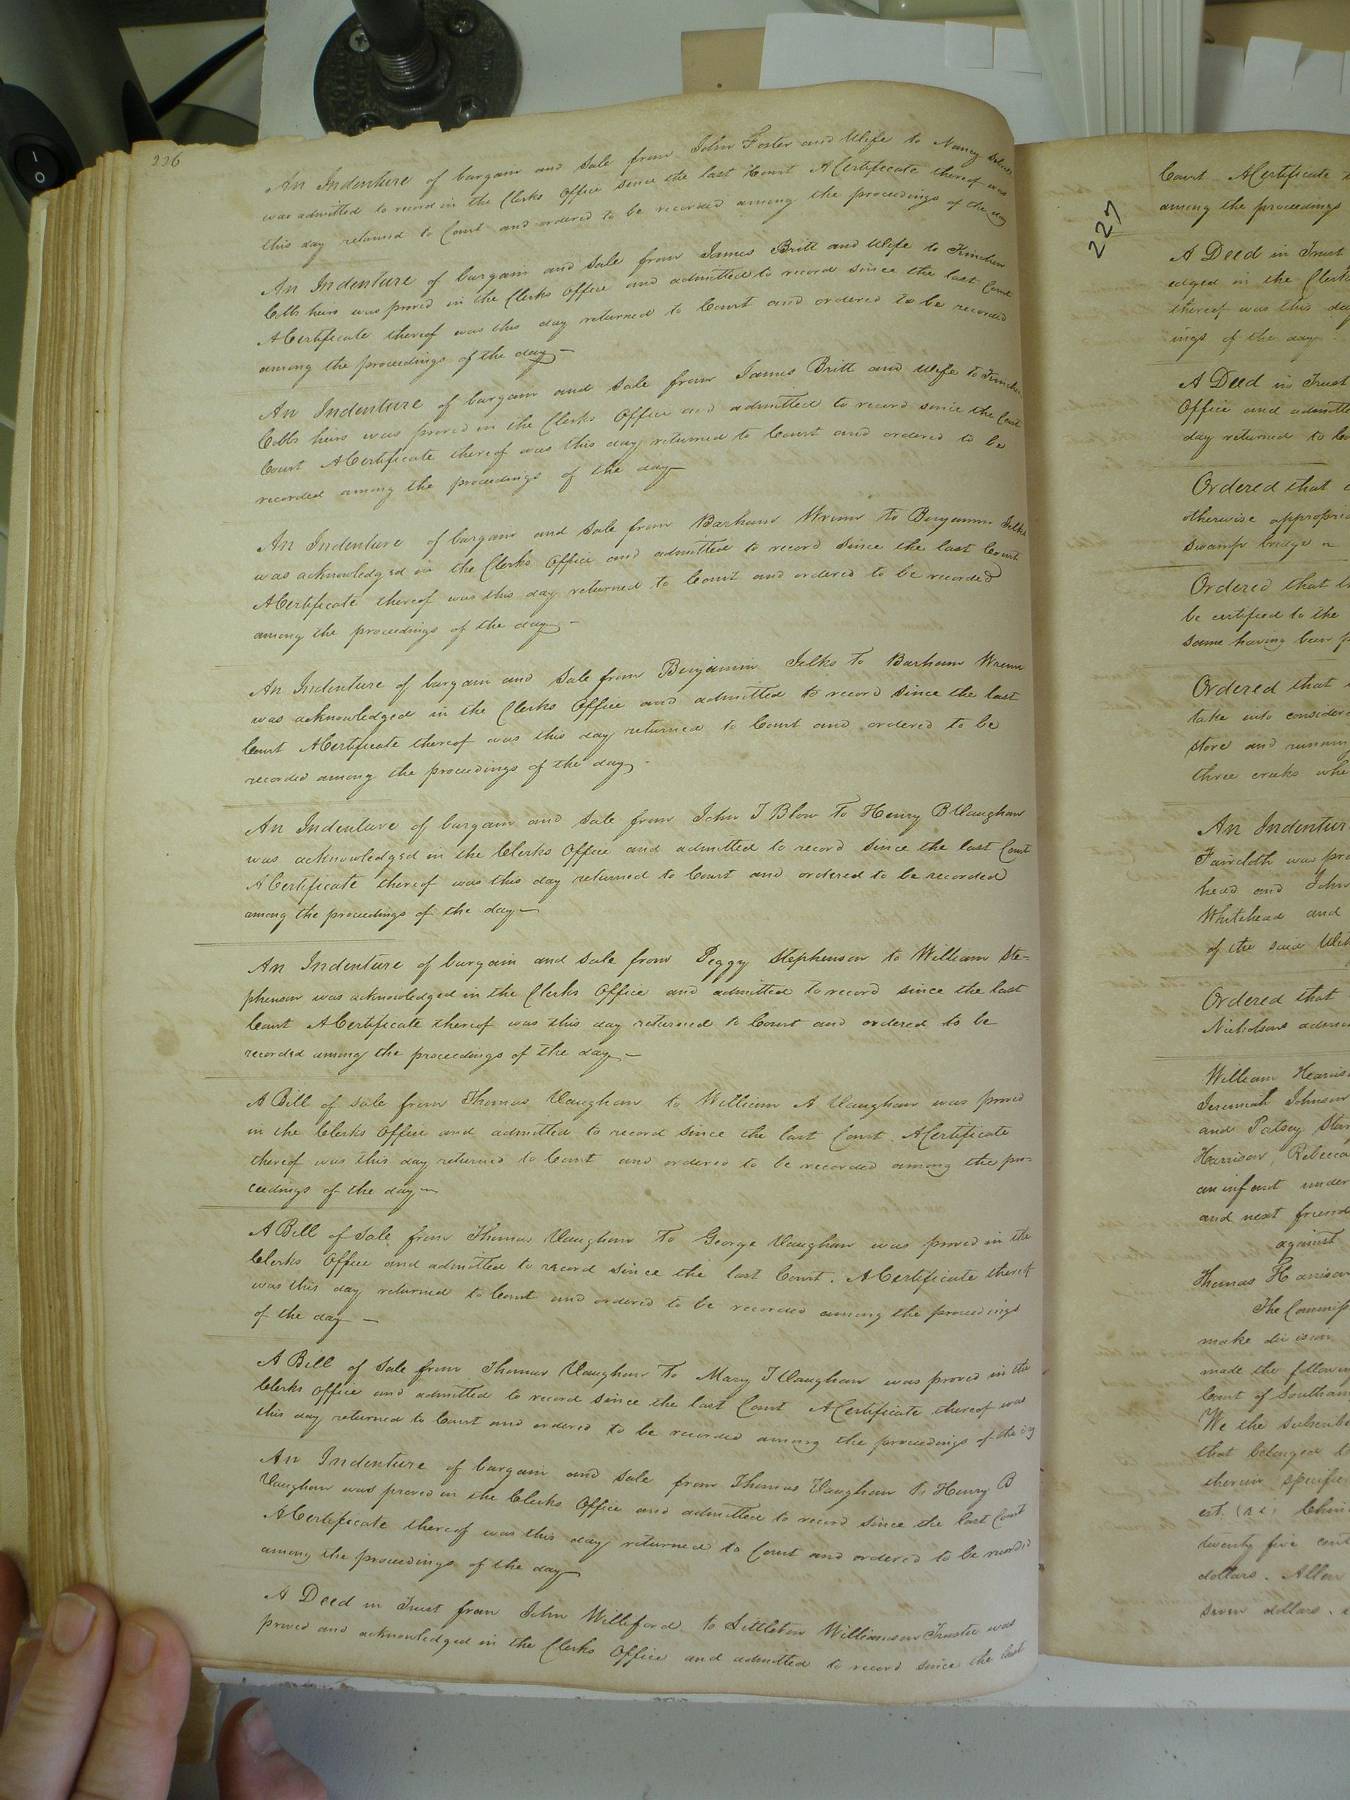 226
An Indenture of bargain and Sale from John Foster and Wife to Nancy
was admitted to record in the Clerks Office since the last Court A Certificate thereof was
this day returned to Court and ordered to be recorded among the proceedings of the day
An Indenture of bargain and Sale from James Britt and Wife to Kinchen
Cobbs heirs was proved in the Clerks Office and admitted to record since the last Court
A Certificate thereof was this day returned to Court and ordered to be recorded
among the proceedings of the day —
An Indenture of bargain and Sale from James Britt and Wife to Kinchen
Cobbs heirs was proved in the Clerks Office and admitted to record since the last
Court A Certificate thereof was this day returned to Court and ordered to be
recorded among the proceedings of the day —
An Indenture of bargain and Sale from Barham Wrenn to Benjamin Jelks
was acknowledged in the Clerks Office and admitted to record since the last Court
A Certificate thereof was this day returned to Court and ordered to be recorded
among the proceedings of the day —
An Indenture of bargain and Sale from Benjamin Jelks to Barham Wrenn
was acknowledged in the Clerks Office and admitted to record since the last
Court A Certificate thereof was this day returned to Court and ordered to be
recorded among the proceedings of the day -
An Indenture of bargain and Sale from John T Blow to Henry B Vaughan
was acknowledged in the Clerks Office and admitted to record since the last Court
A Certificate thereof was this day returned to Court and ordered to be recorded
among the proceedings of the day —
An Indenture of bargain and Sale from Peggy Stephenson to William Ste=
phenson was acknowledged in the Clerks Office and admitted to record since the last
Court A Certificate thereof was this day returned to Court and ordered to be
recorded among the proceedings of the day —
A Bill of Sale from Thomas Vaughan to William A Vaughan was proved
in the Clerks Office and admitted to record since the last Court. A Certificate
thereof was this day returned to Court and ordered to be recorded among the pro=
ceedings of the day —
A Bill of Sale from Thomas Vaughan to George Vaughan was proved in the
Clerks Office and admitted to record since the last Court. A Certificate thereof
was this day returned to Court and ordered to be recorded among the proceedings
of the day —
A Bill of Sale from Thomas Vaughan to Mary T Vaughan was proved in the
Clerks Office and admitted to record since the last Court A Certificate thereof was
this day returned to Court and ordered to be recorded among the proceedings of the day
An Indenture of bargain and Sale from Thomas Vaughan to Henry B
Vaughan was proved in the Clerks Office and admitted to record since the last Court
A Certificate thereof was this day returned to Court and ordered to be recorded
among the proceedings of the day
A Deed in Trust from John Williford to Littleton Williamson Trustee was
proved and acknowledged in the Clerks Office and admitted to record since the last
227
Court A Certificate
among the proceedings
A Deed in Trust
edged in the Clerks
thereof was this day
ings of the day
A Deed in Trust
Office and admitted
day returned to
Ordered that
otherwise
Swamp bridge
Ordered that
be certified to the
same having been
Ordered that
take into
store and
three creeks
An Indenture
Faircloth was
head and John
Whitehead and
of the said
Ordered that
Nicholsons
William Harrison
Jeremiah Johnson
and Patsey
Harrison, Rebecca
an infant under
and next friend
against
Thomas Harrison
The
make division
made the following
Court of
We the
that belonged
therein
est.
twenty five
dollars. Allen
seven dollars.